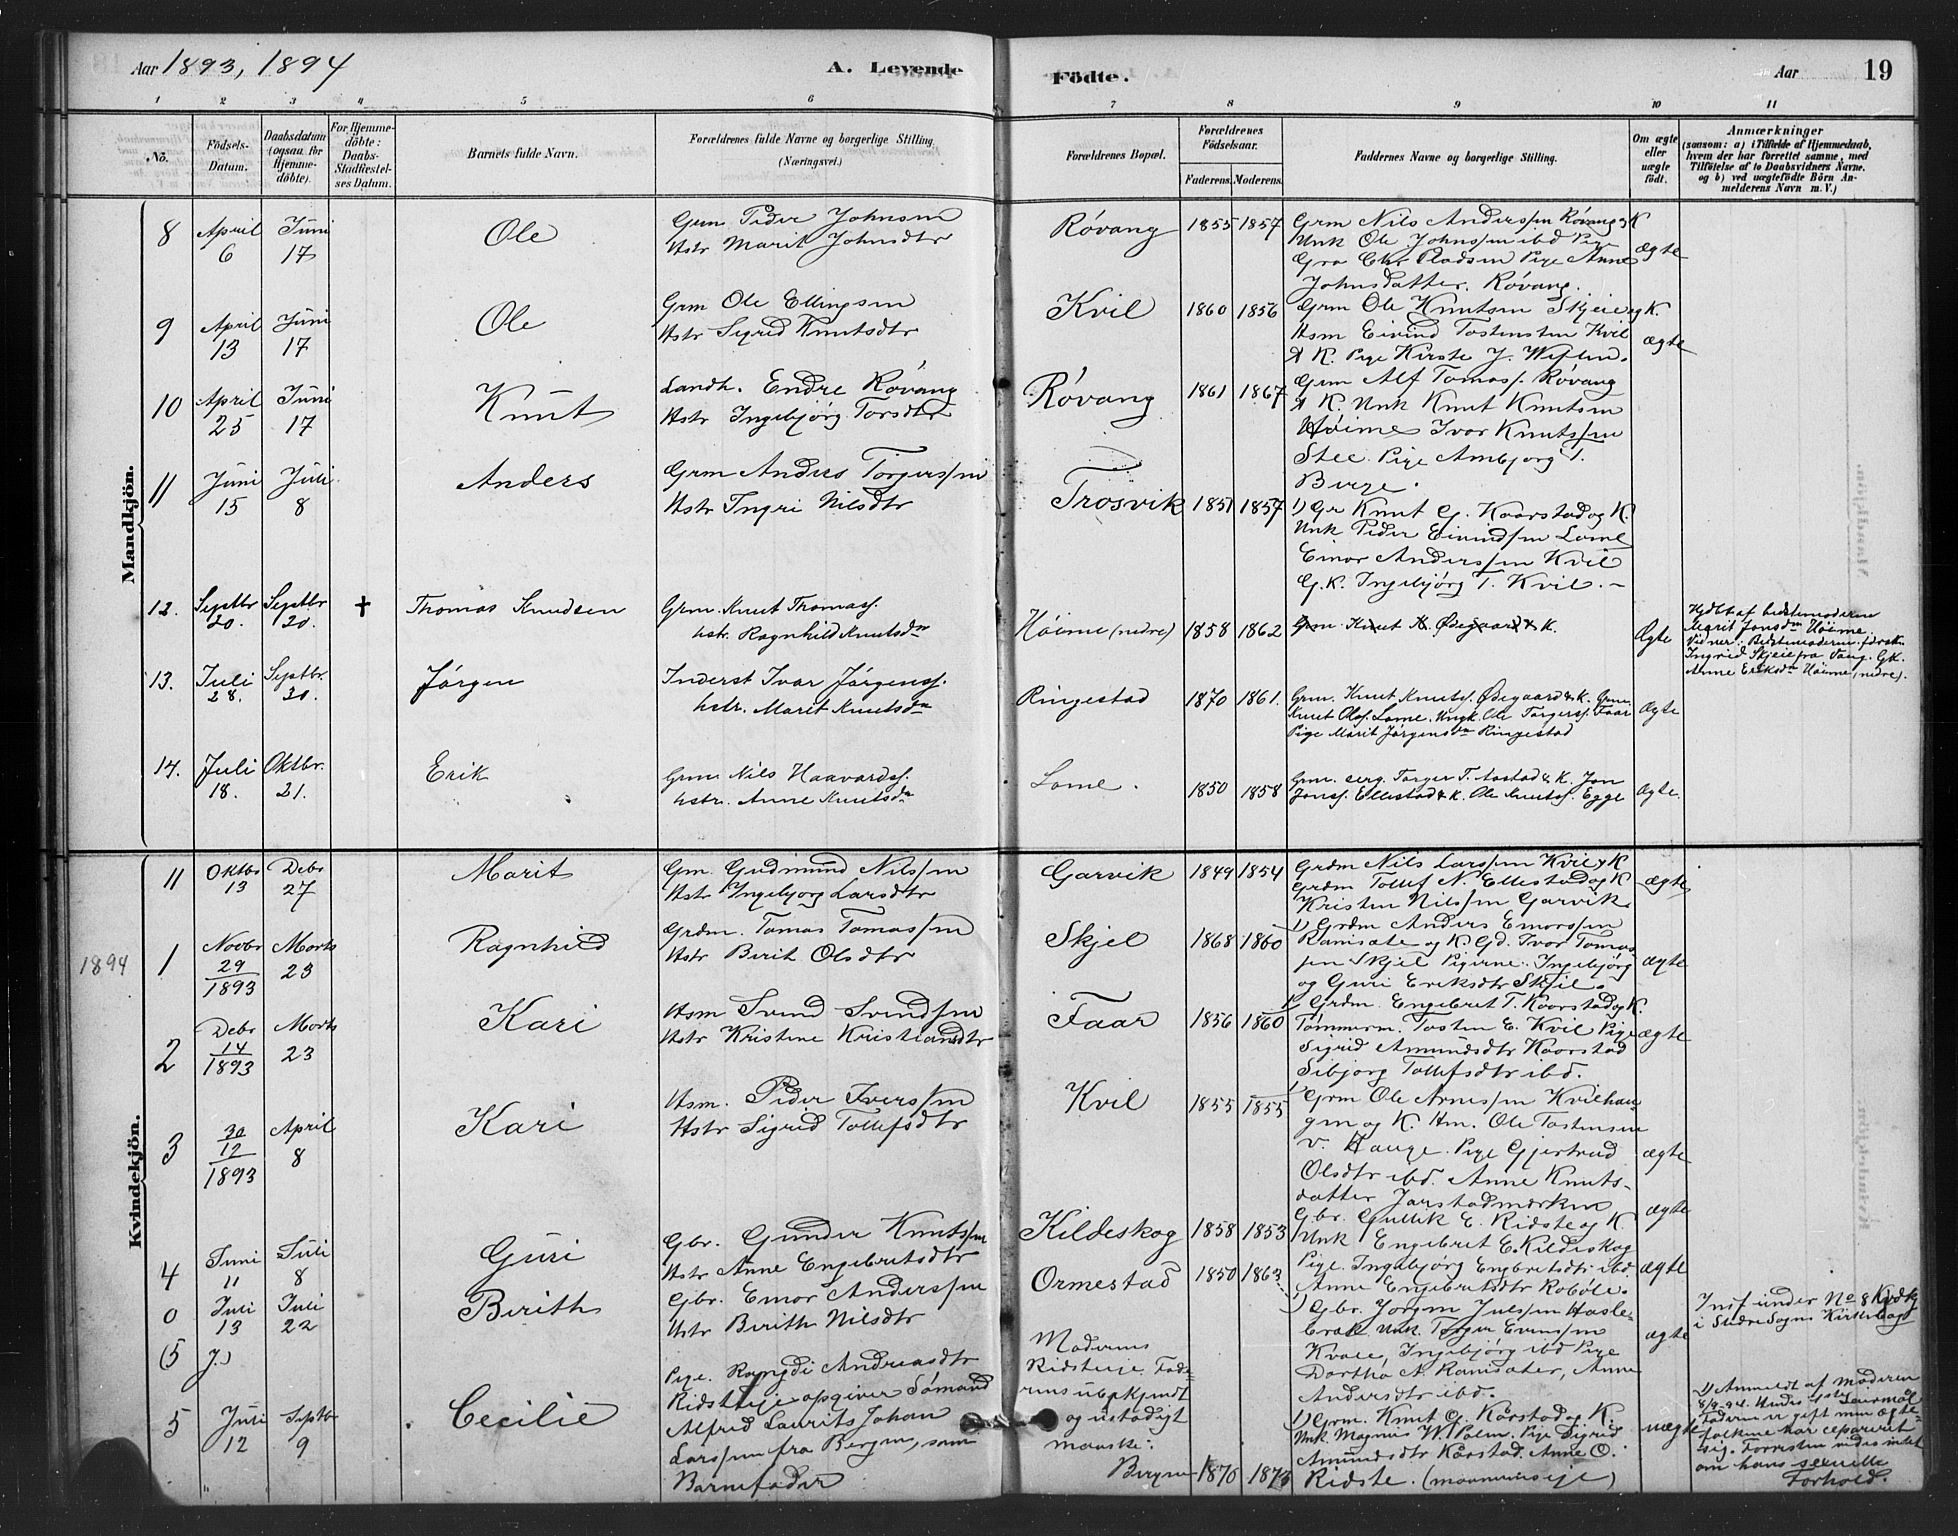 Aar 1893, 1894
A. Levende
Födte.
Aar
19
1 2 3 4 5 6 7 8 9 10 11
No.
Födsels-Datum.
Daabsdatum (ogsaa for Hjemme-döbte).
For Hjemme-döbte: Daabs-Stadfæstel-ses Datum.
Barnets fulde Navn.
Forældrenes fulde Navne og borgerlige Stilling. (Næringsvei.)
Forældrenes Bopæl.
Forældrenes Födselsaar.
Faderens. Moderens.
Faddernes Navne og borgerlige Stilling.
Om ægte eller uægte födt.
Anmærkninger
(saasom: a) i Tilfælde af Hjemmedaab, hvem der har forrettet samme, med Tilföielse af to Daabsvidners Navne. og b) ved uægtefödte Börn An-melderens Navn m. V.)
Mandkjön.
8 April 6 Juni 17 Ole
Grm Peder Johnsen
Hstr Marit Johnsdtr
Røvang 1855 1857
Grm Nils Anderssen Røvang & K
Unk Ole Johnssen ibd Pige
Gro Chr Pladsen Pige Anne
Johnsdatter Røvang.
ægte
9 April 13 Juni 17 Ole
Grm Ole Ellingsen
Hstr Sigrid Knutsdtr
Kvil 1860 1856
Grm Ole Knutsen Skjeie og K.
Hsm Eivind Tostensten Kvil
& K. Pige Kirste J.
ægte
10 April 25 Juni 17 Knut
Landh. Endre Røvang
Hstr Ingebjörg Torsdtr
Røvang 1861 1867
Grm Alf Tomass. Røvang
& K. Unk Knut Knutsen
Høime Ivar Knutssen
Stee Pige Ambjørg T.
Berge.
11 Juni 15 Juli 8 Anders
Grm Andres Torgerssen
Hstr Ingri Nilsdtr
Trosvik 1851 1857
1) Gr Knut G. Kaarstad og K.
Unk Peder Eivindssen Lome
Einar Anderssen Kvil
G.K. Ingebjörg T. Kvil.
12. Septbr 20. Septbr 20. † Thomas Knudsen
Grm. Knut Thomass.
hstr. Ragnhild Knutsdn
Høime (nedre) 1858 1862
Grm. Knut K Ødegaard & K.
Ægte
Hjdbt af bedstemoderen
Marit Jonsdn Høime.
Vidner: Bedstemoderen, forsk.
Ingrid Skjeie fra Vang. Gk.
Anne Eriksdn Høime (nedre).
13. Juli 28. Septbr. 30. Jørgen
Inderst Ivar Jørgenss.
hstr. Marit Knutsdn
Ringestad 1870 1861.
Grm. Knut Knutss. Ødegaard & K. Grm.
Knut Olss. Lome. Ungk. Ole Torgerss. Faar
Pige Marit Jørgensdn Ringestad
Ægte
14. Juli 18. Oktbr. 21. Erik
Grm. Nils Haavardss.
hstr. Anne Knutsdn
Lome. 1850 1858
Grm. Torger T. Aastad & K. Jon
Jonss. Ellestad & K. Ole Knutss. Egge
Ægte.
Kvindekjön.
11 Oktbr 13 Debr 27 Marit
Gm. Gudmund Nilssen
Hstr Ingebjørg Larsdtr
Garvik 1849 1854
Grdm Nils Larssen Kvil & K
Grdm Tollef N. Ellestad og K
Kristen Nilssen Garvik
ægte
1894
1 Novbr 29 1893 Marts 23 Ragnhild
Grdm. Tomas Tomassen
Hstr Berit Olsdtr
Skjel 1868 1860
1) Grdm Anders Emorssen
Ramsøte og K. Gd. Ivor Tomas
sen Skjel Pigerne. Ingebjörg
og Guri Eriksdtr Skjel.
ægte
2 Debr 14 1893 Marts 23 Kari
Hsm Svend Svendsen
Hstr Kristine Kristiansdtr
Faar 1856 1860
1) Grdm. Engebret T. Kaarstad og K.
Tømmerm. Tosten E. Kvil Pige
Sigrid Amundsdtr Kaarstad
Sibjørg Tollefsdtr ibd.
ægte
3 30 12 1893 April 8 Kari
Hsm. Peder Iverssen
Hstr Sigrid Tollefsdtr
Kvil 1855 1855
1) Grm Ole Arnessen Kvilhau-
gen og K. Hm. Ole Tostensen
v. Hauge. Pige Gjertrud
Olsdtr ibd. Anne Knuts-
datter Jarstadmerken
ægte
4 Juni 11 Juli 8 Guri
Gbr. Gunder Knutssen
Hstr Anne Engebretsdtr
Kildeskog 1858 1853
Gbr. Gullik E. Ridste og K
Unk Engebret E. Kildeskog
Pige. Ingebjørg Engbretsdtr ibd.
Anne Engebretsdtr Robøle.
ægte
0 Juli 13 Juli 22 Berith
Gbr. Emor Anderssen
Hstr Berith Nilsdtr
Ormestad 1850 1863
ægte
1) Gbr. Jørgen Julssen Hasle-
brek. Unk. Torger Evenssen
Kvale, Ingebjørg ibd Pige
Dorthø A. Ramsøter, Anne
Andersdtr ibd.
ægte
Inf. under No 8 Kvdkj
i Slidre Sogns Kirkebog
(5 J.)
5 Juli 12 Septbr 9 Cecilie
Pige. Rangdi Andreasdtr
Ridsteeje opgiver Sømand
Alfred Laurits Johan
Larssen fra Bergen, som
Barnefader
Moderens
Ridsteeje. Fade-
rens ubekjendt
og ustadigt
maaske:
Bergen 1870 1873
1) Grm. Knut G. Kårstad og K.
Unk. Magnus W. Palm. Pige Sigrid
Amundsdtr Kårstad. Anne O.
Ridste.
uægte
1) Anmeldt af Moderen
8/9-94. Hendes 1ste Leiermål
Faderen er gift men ægte-
folkene har separeret
sig. Forresten vides intet
om hans sexuelle
Forhold.